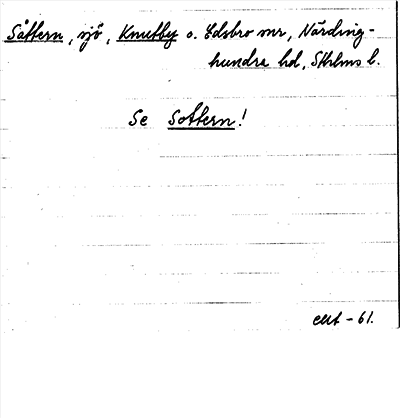 Såttern, sjö, Knutby o. Edsbro snr, Närding-
hundra hd, Sthlms l.
Se Sottern!
-61.